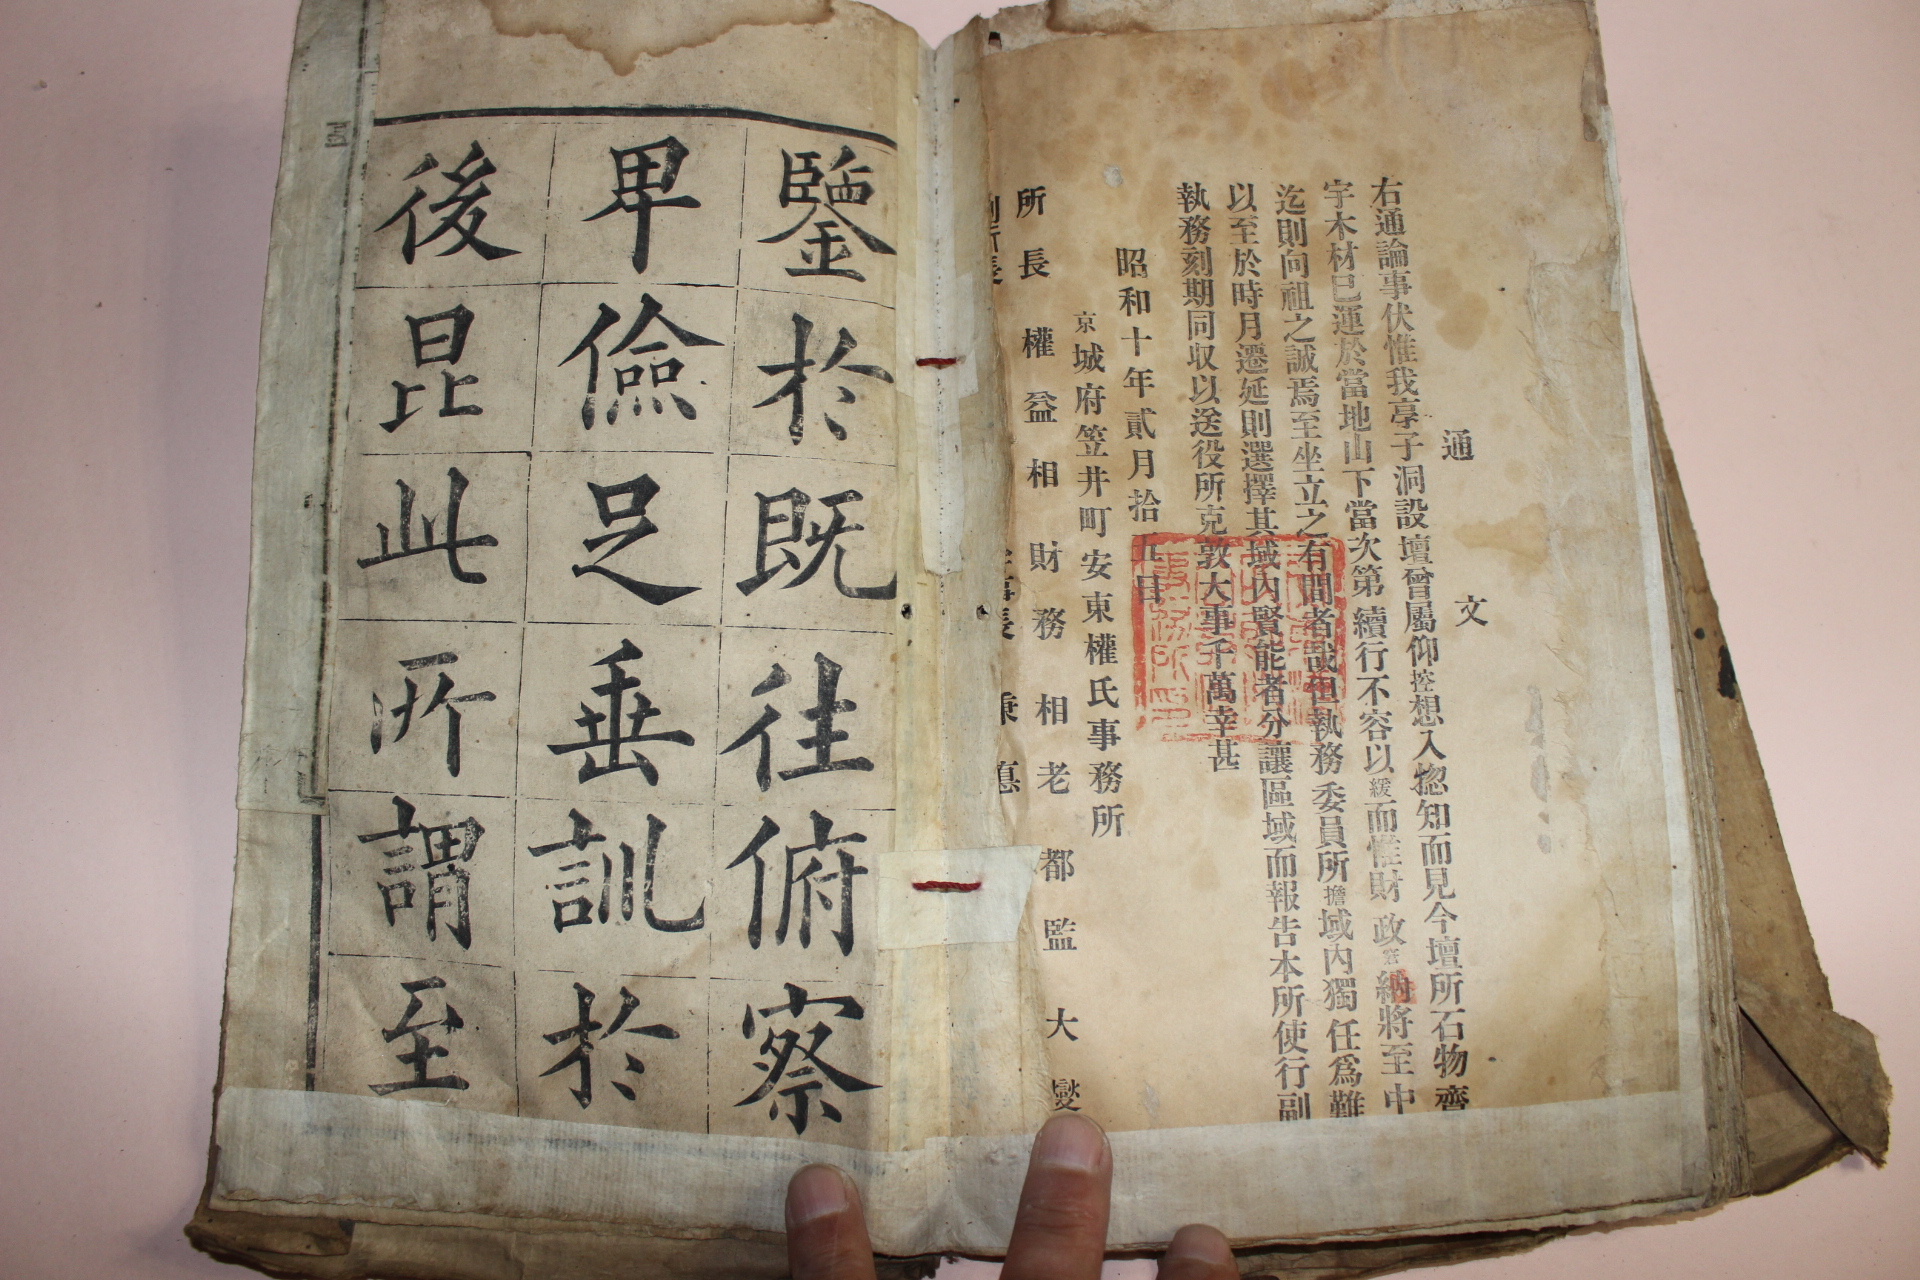 通文
右通論事伏惟我亭子洞設壇曾屬仰控想入惚知而見今壇所石物齊
宇木材已運於當地山下當次第續行不容以緩而惟財政窘納將至中
迄則向祖之誠焉至坐立之有間者哉但執務委員所擔域內獨任爲難
以至於時月遷延則選擇其域內賢能者分讓區域而報告本所使行副
執務刻期同収以送役所克敦大事千萬幸甚
昭和十年貳月拾五日
京城府笠井町安東權氏事務所
所長權益相財務相老都監大燮
副所長 事長秉悳
鑒於既往俯察
卑儉足垂訓於
後昆此所謂至